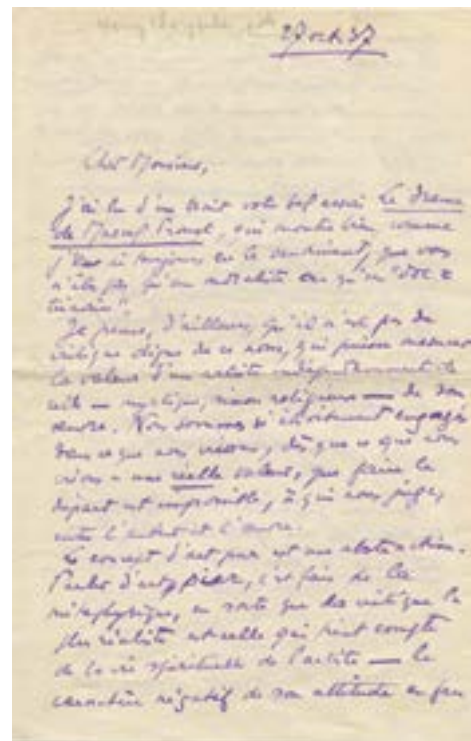 27 oct. 37
Cher Monsieur,
J'ai lu d'un trait votre bel essai Le Drame
de Marcel Proust, qui montre bien, comme
j'en ai toujours eu le sentiment, que vous
n'êtes pas qu'un moraliste ou qu'un
Je pense, d'ailleurs, qu'il n'est pas de
critique digne de ce nom, qui puisse mesurer
la valeur d'un artiste indépendamment de
celle — mystique, sinon religieuse — de son
œuvre. Nous sommes si étroitement engagés
dans ce que nous créons, dès que ce que nous
créons a une réelle valeur, que faire le
départ est impossible, à qui nous juge,
entre l'auteur et l'œuvre.
Le concept d'art pur est une abstraction.
Parler d'art pur, c'est faire de la
métaphysique, en sorte que la critique la
plus réaliste est celle qui tient compte
de la vie spirituelle de l'artiste — le
caractère négatif de son attitude en face